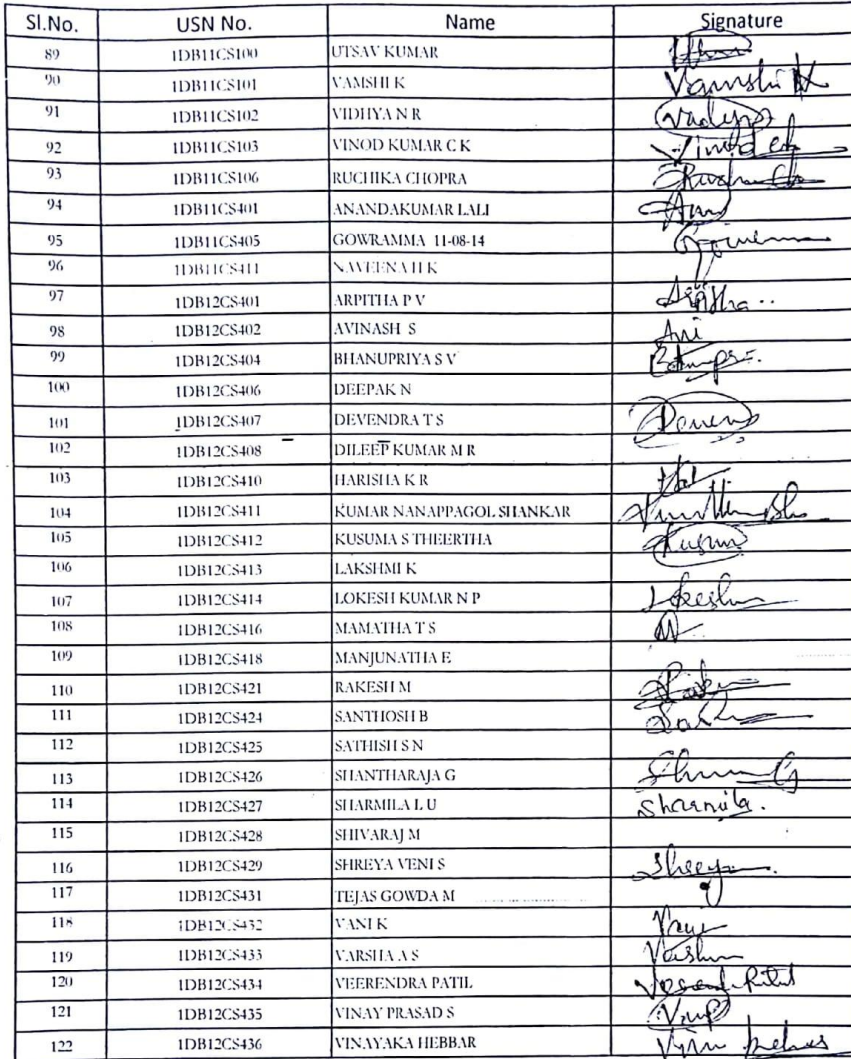 Sl.No. USN No. Name Signature
89 1DB11CS100 UTSAV KUMAR
90 1DB11CS101 VAMSHI K Vamshi K
91 1DB11CS102 VIDHYA N R
92 1DB11CS103 VINOD KUMAR C K
93 1DB11CS106 RUCHIKA CHOPRA
94 1DB11CS401 ANANDAKUMAR LALI
95 1DB11CS405 GOWRAMMA 11-08-14
96 1DB11CS411 NAVEENA H K
97 1DB12CS401 ARPITHA P V Arpitha
98 1DB12CS402 AVINASH S Avi
99 1DB12CS404 BHANUPRIYA S V
100 1DB12CS406 DEEPAK N
101 1DB12CS407 DEVENDRA T S
102 1DB12CS408 DILEEP KUMAR M R
103 1DB12CS410 HARISHA K R
104 1DB12CS411 KUMAR NANAPPAGOL SHANKAR
105 1DB12CS412 KUSUMA S THEERTHA
106 1DB12CS413 LAKSHMI K
107 1DB12CS414 LOKESH KUMAR N P
108 1DB12CS416 MAMATHA T S
109 1DB12CS418 MANJUNATHA E
110 1DB12CS421 RAKESH M
111 1DB12CS424 SANTHOSH B
112 1DB12CS425 SATHISH S N
113 1DB12CS426 SHANTHARAJA G
114 1DB12CS427 SHARMILA L U Sharmila.
115 1DB12CS428 SHIVARAJ M
116 1DB12CS429 SHREYA VENI S
117 1DB12CS431 TEJAS GOWDA M
118 1DB12CS432 VANI K
119 1DB12CS433 VARSHA A S
120 1DB12CS434 VEERENDRA PATIL
121 1DB12CS435 VINAY PRASAD S
122 1DB12CS436 VINAYAKA HEBBAR